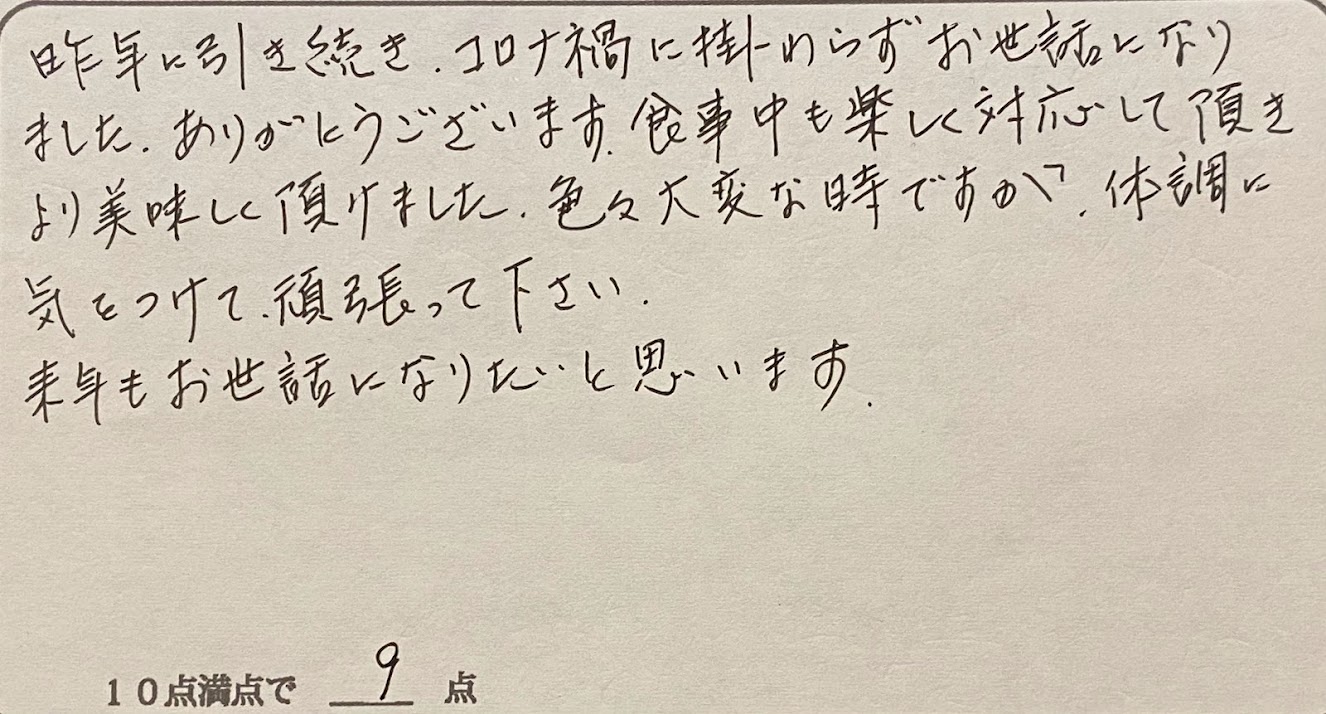 昨年に引き続き、コロナ禍に掛わらずお世話になり
ました。ありがとうございます。食事中も楽しく対応して頂き
より美味しく頂けました。色々大変な時ですが、体調に
気をつけて、頑張って下さい。
来年もお世話になりたいと思います。
10点満点で 9 点